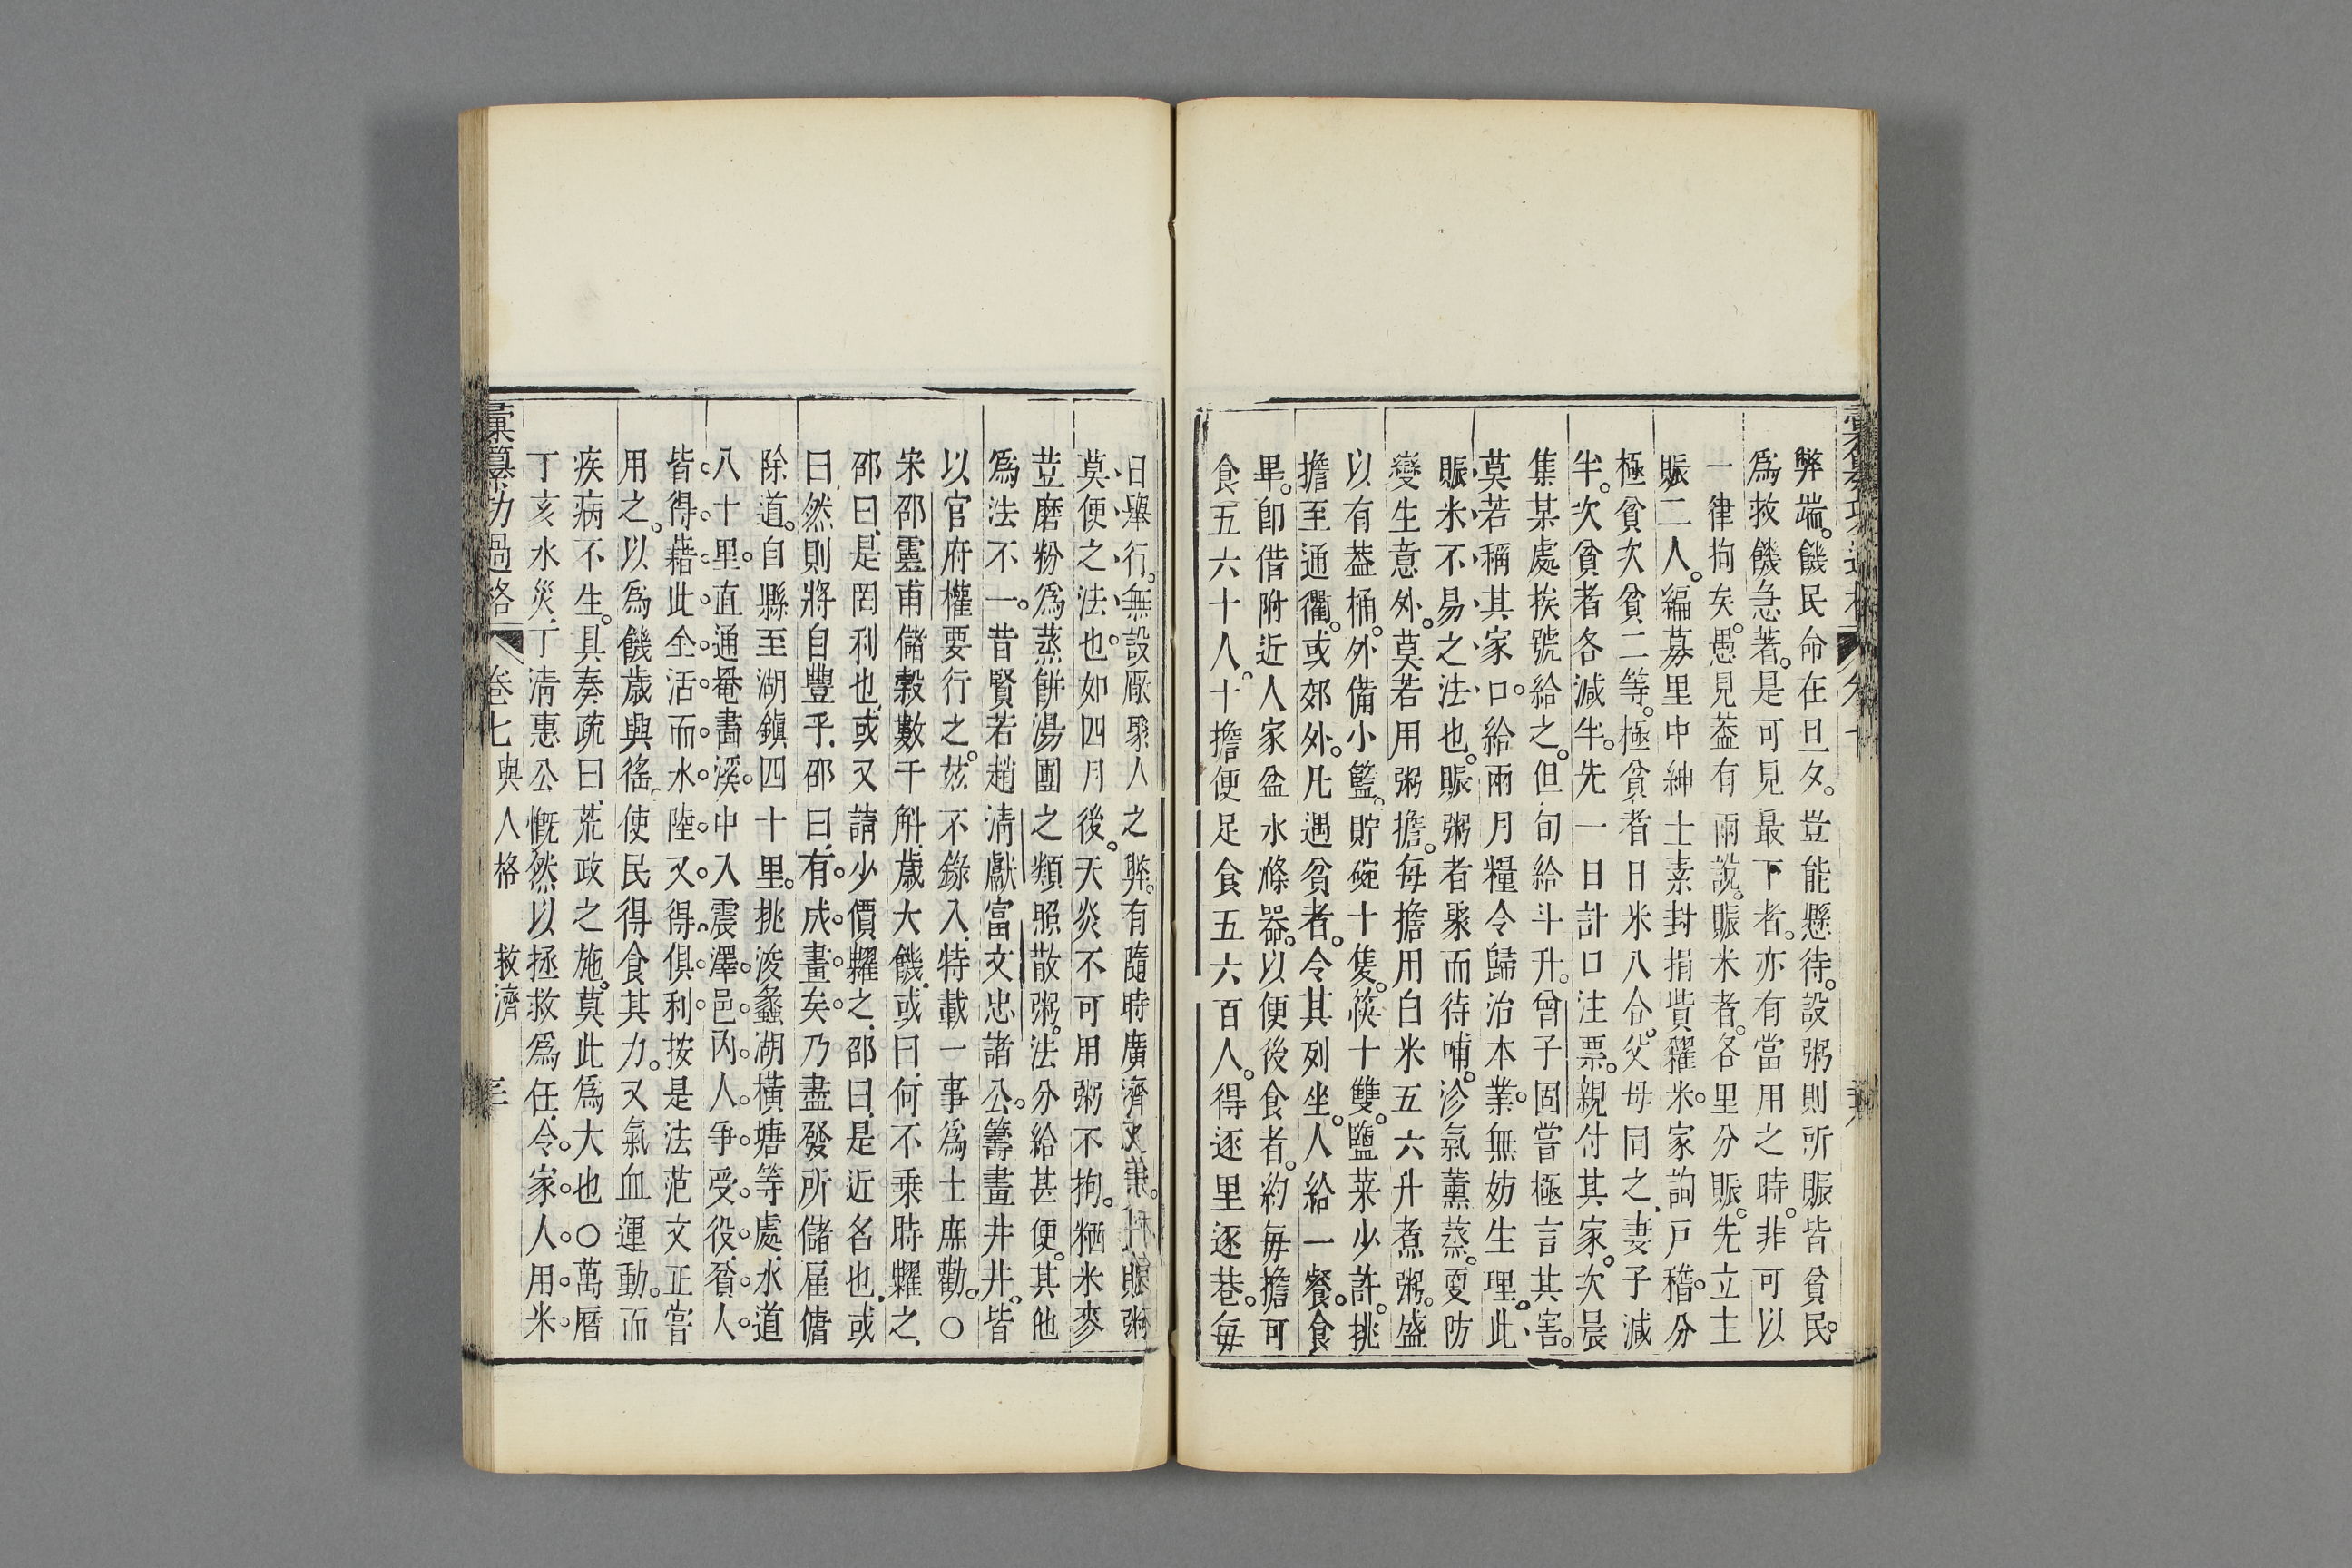 弊端。饑民命在旦夕。豈能懸待。設粥則所賑皆貧民。
爲救饑急著。是可見最下者。亦有當用之時。非可以
一律拘矣。愚見葢有兩說。賑米者。各里分賑。先立主
賑二人。編募里中紳士素封捐貲糴米。家詢戸稽。分
極貧次貧二等。極貧者日米八合。父母同之。妻子減
半。次貧者各減半。先一日計口注票。親付其家。次晨
集某處挨號給之。但旬給斗升。曾子固嘗極言其害。
莫若稱其家口。給兩月糧令歸治本業。無妨生理。此
賑米不易之法也。賑粥者聚而待哺。沴氣薰蒸。更防
變生意外。莫若用粥擔。每擔用白米五六升煮粥。盛
以有葢桶。外備小籃。貯碗十隻。筷十雙。鹽菜少許。挑
擔至通衢。或郊外。凡遇貧者。令其列坐。人給一餐。食
畢。卽借附近人家盆水滌器。以便後食者。約每擔可
食五六十人。十擔便足食五六百人。得逐里逐巷。每
日舉行。無設厰聚人之弊。有隨時廣濟之美。賑粥
莫便之法也。如四月後。天炎不可用粥。不拘。粞米麥
荳磨粉爲蒸餅湯團之類。照散粥。法分給甚便。其他
爲法不一。昔賢若趙淸獻富文忠諸公。籌畫井井。皆
以官府權要行之。茲不錄入。特載一事爲士庶勸。○
宋邵靈甫儲穀數千斛。歲大饑。或曰。何不乗時糶之。
邵曰。是罔利也。或又請少價糶之。邵曰。是近名也。或
曰。然則將自豐乎。邵曰。有成畫矣。乃盡發所儲雇傭
除道。自縣至湖鎭四十里。挑浚蠡湖橫塘等處。水道
八十里。直通罨畵溪。中入震澤。邑丙人爭受役。貧人
皆得藉此全活。而水陸又得俱利。按是法范文正嘗
用之。以爲饑歲興徭。使民得食其力。又氣血運動。而
疾病不生。具奏疏曰。荒政之施。莫此爲大也○萬曆
丁亥水災。丁淸惠公慨然以拯救爲任。令家人用米
彙纂功過格 卷七 與人格 救濟